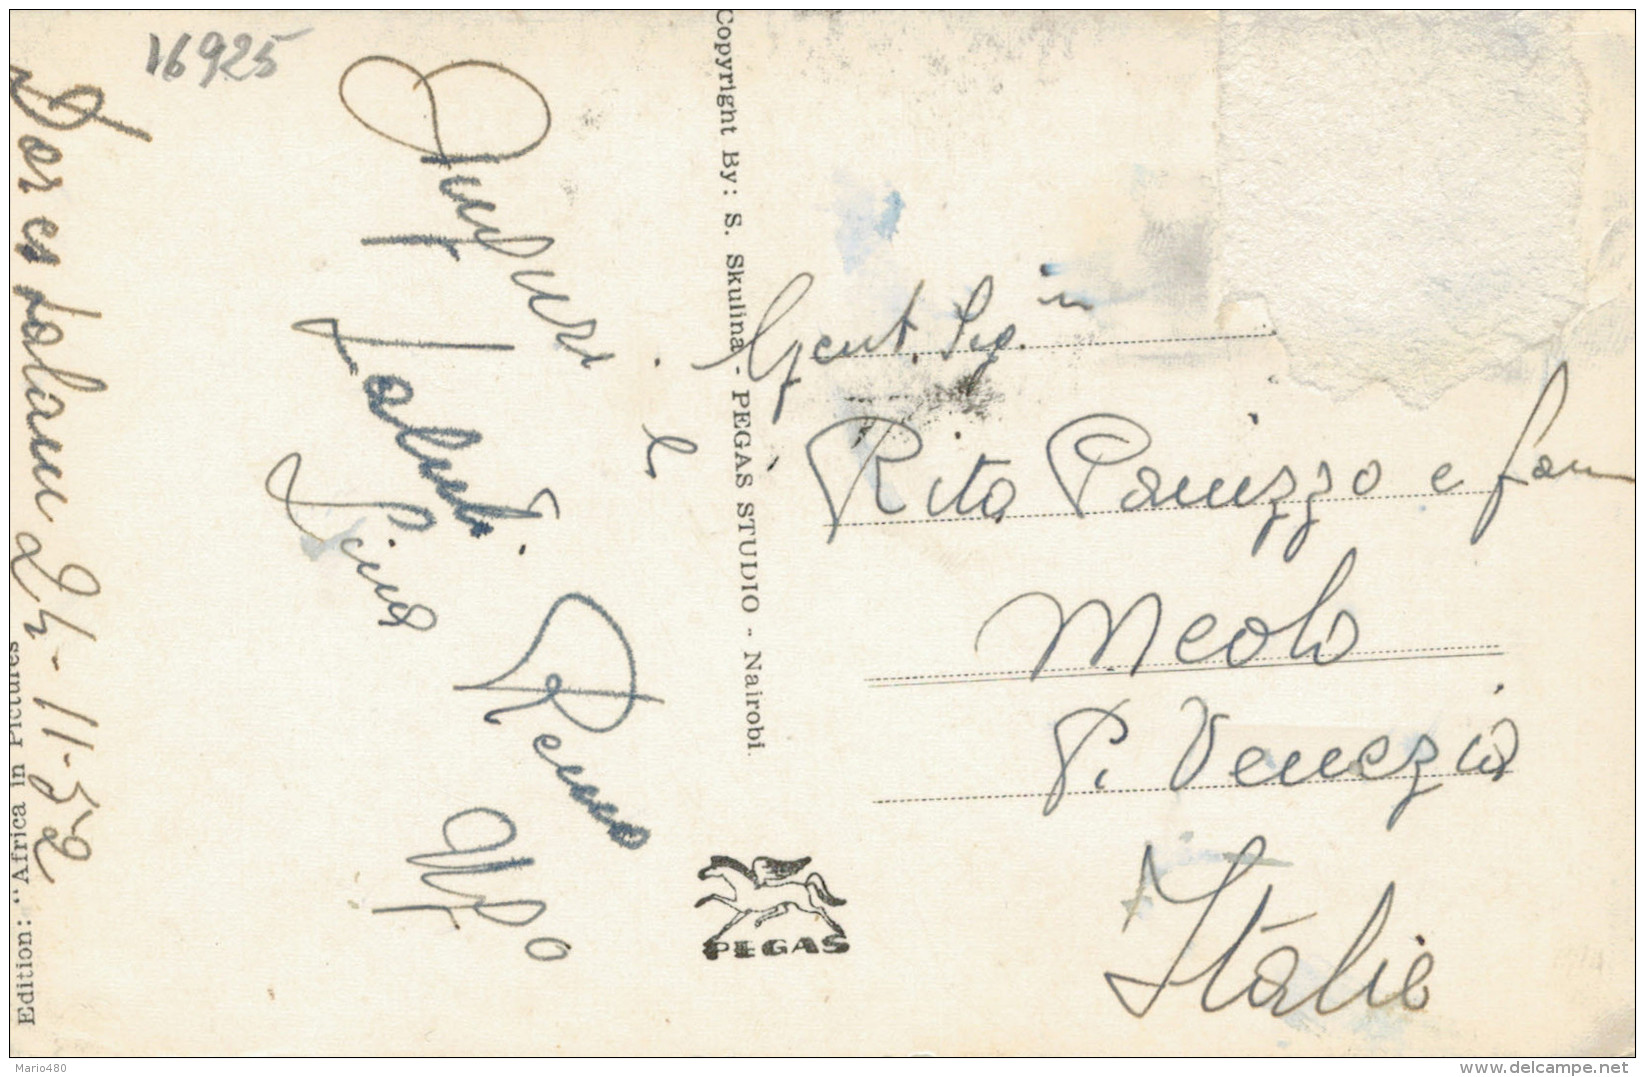 16925
Dar es Salaam 24-11-52
Auguri
e
Saluti
Lina
Renzo
Edition: "Africa in Pictures
Copyright By: S. Skulina - PEGAS STUDIO - Nairobi.
PEGAS
Gent. Sig.
Rita Panizzo e fam
Meolo
P. Venezia
Italia
Mario480
delcampe.net